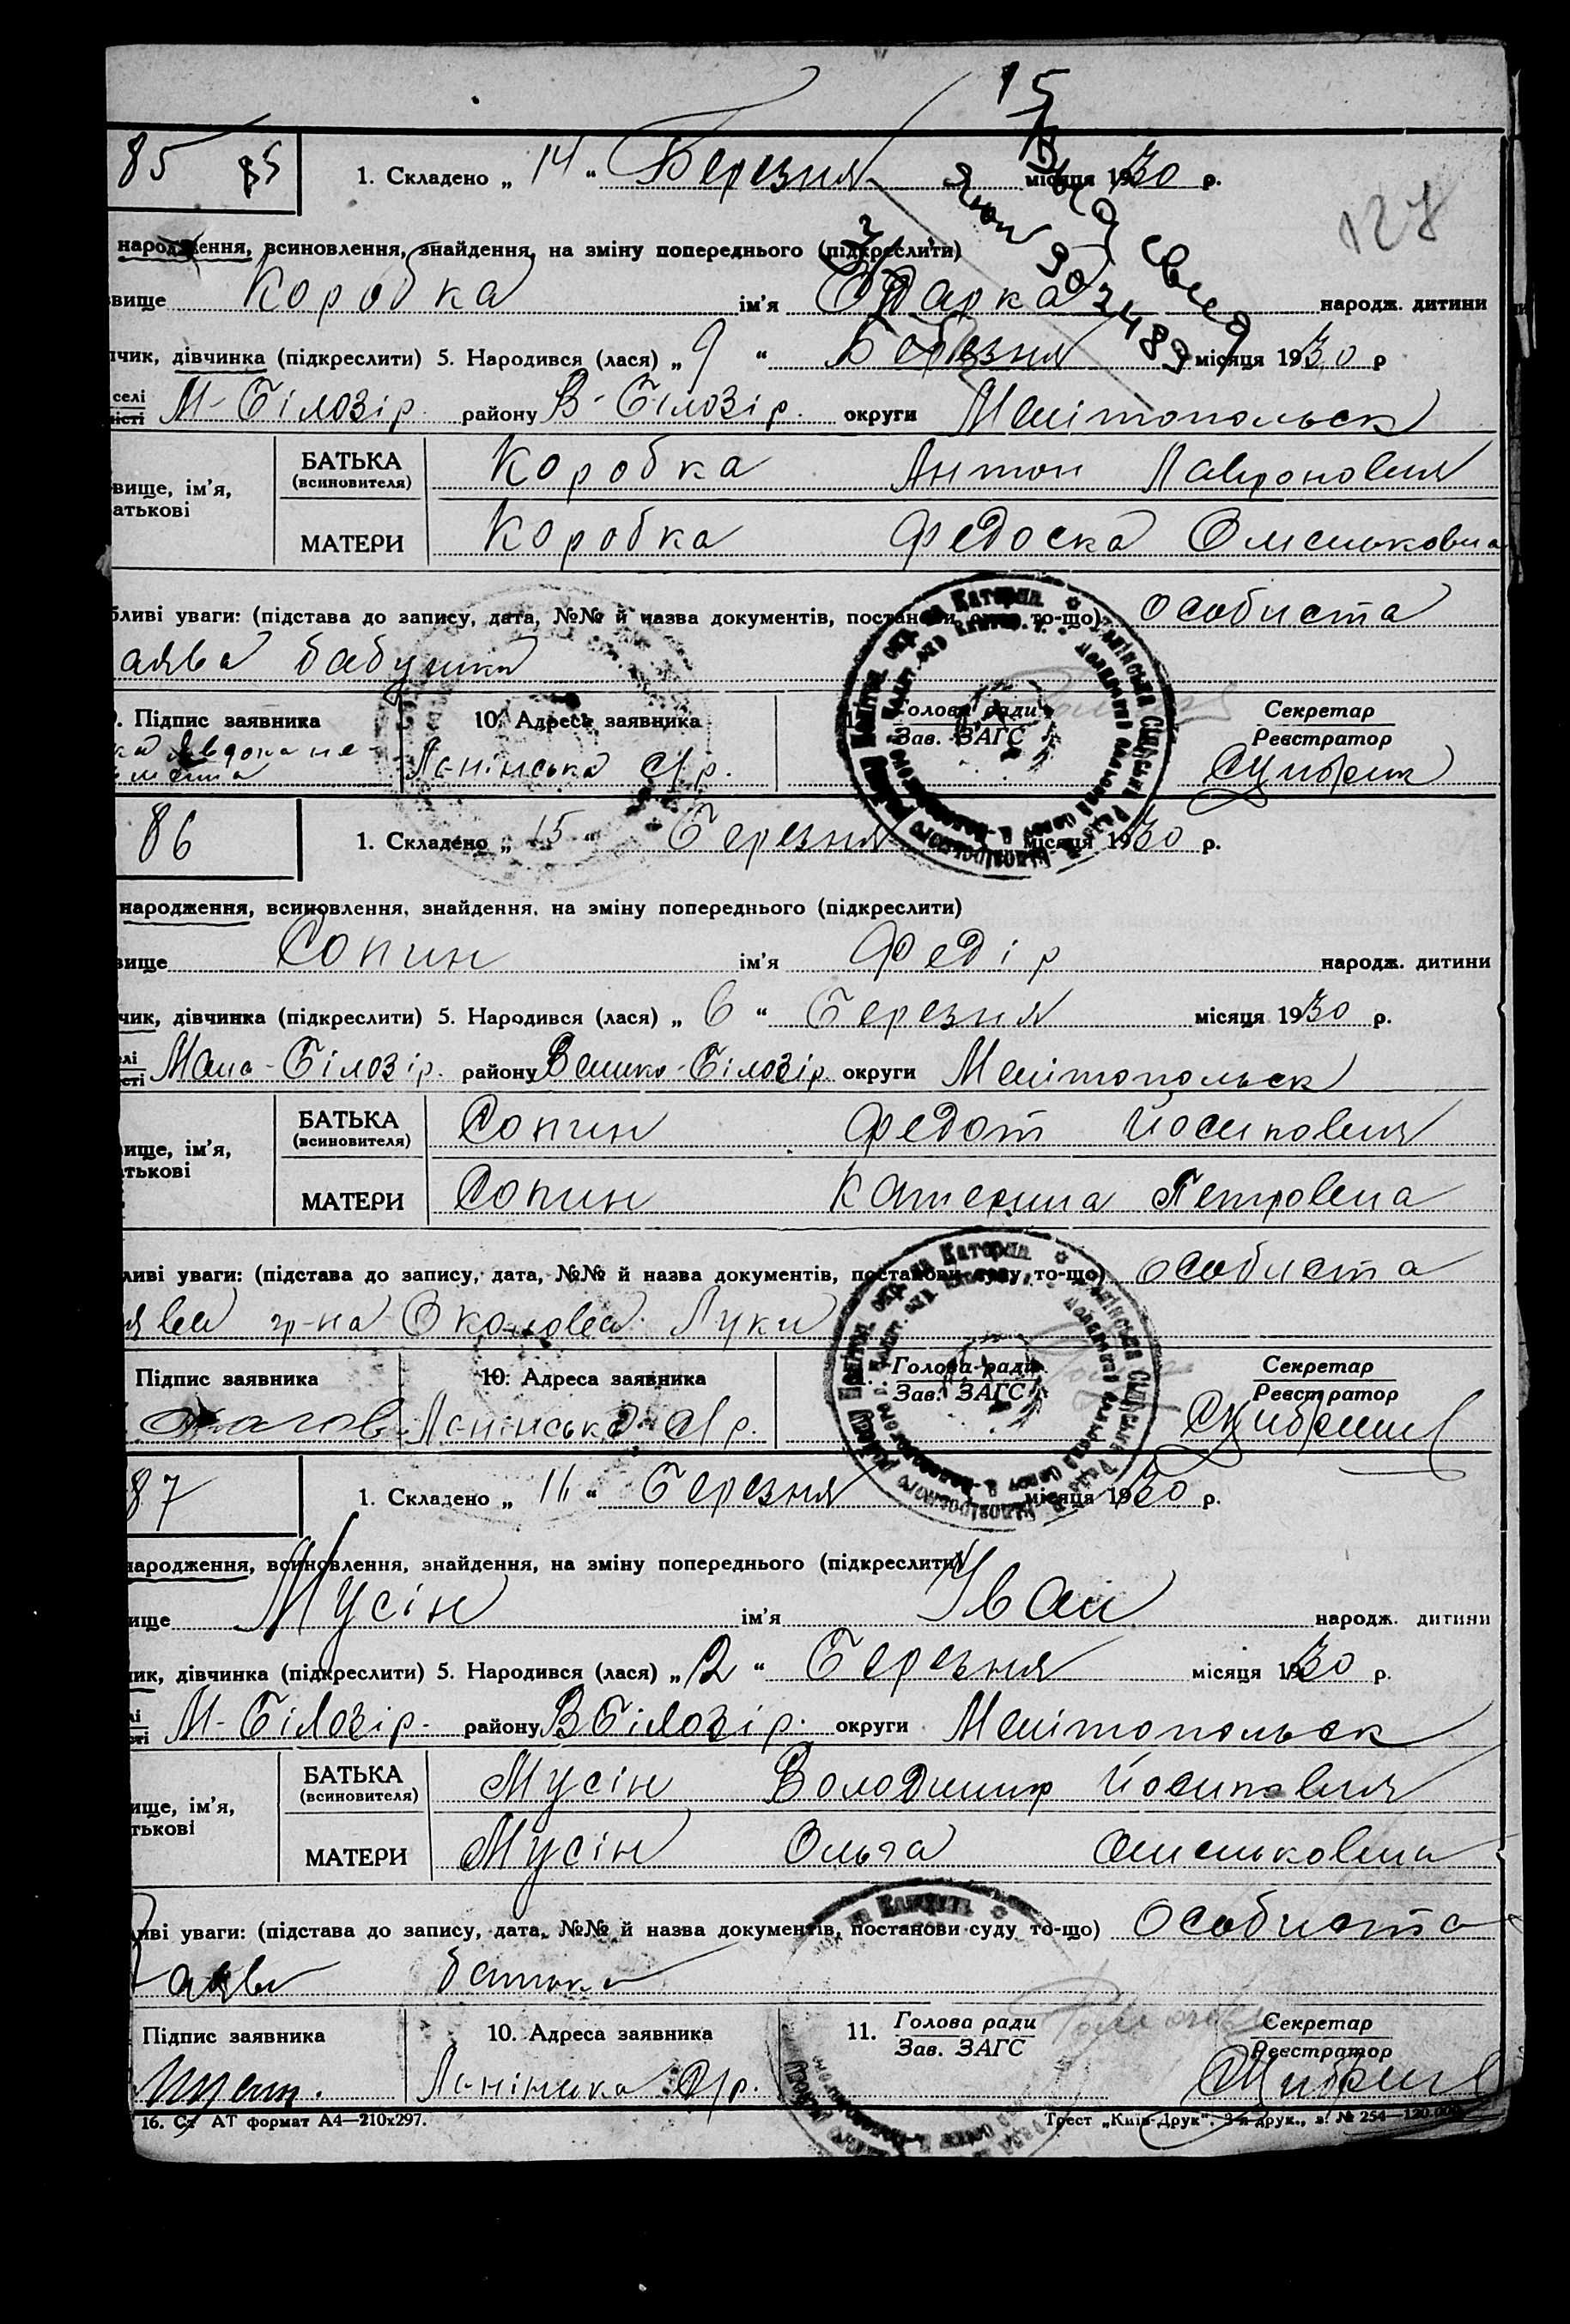 15
85 85 1. Складено „ 14 “ Березня місяця 1930 р.
127
народження, всиновлення, знайдення, на зміну попереднього (підкреслити)
вище Коробка ім'я Одарка народж. дитини
пчик, дівчинка (підкреслити) 5. Народився (лася) „ 9 “ Березня місяця 1930 р
селі М-Білозір. району В-Білозір. округи Мелітопольськ
БАТЬКА (всиновителя) Коробка Антон
вище, ім'я,
атькові
МАТЕРИ Коробка Федоска Омельковна
бливі уваги: (підстава до запису, дата, №№ й назва документів, постанови суду то-що) особиста
аява бабушки
. Підпис заявника 10. Адреса заявника Голова ради Секретар
Зав. ЗАГС Реєстратор
Ленінська с/р.
86 1. Складено „ 15 “ Березня місяця 1930 р.
народження, всиновлення, знайдення, на зміну попереднього (підкреслити)
вище Сопин ім'я Федір народж. дитини
чик, дівчинка (підкреслити) 5. Народився (лася) „ 6 “ Березня місяця 1930 р.
елі Мало-Білозір. району Велико-Білозір округи Мелітопольськ
БАТЬКА (всиновителя) Сопин Федот Йосипович
вище, ім'я,
тькові
МАТЕРИ Сопин Катерина Петровна
ливі уваги: (підстава до запису, дата, №№ й назва документів, постанови суду то-що) особиста
гр-на Луки
Підпис заявника 10. Адреса заявника Голова ради Секретар
Зав. ЗАГС Реєстратор
Ленінська с/р.
87 1. Складено „ 16 “ Березня місяця 1930 р.
народження, всиновлення, знайдення, на зміну попереднього (підкреслити)
вище Мусін ім'я Іван народж. дитини
чик, дівчинка (підкреслити) 5. Народився (лася) „ 12 “ Березня місяця 1930 р.
М-Білозір. району В Білозір. округи Мелітопольськ
БАТЬКА (всиновителя) Мусін Володимир Йосипович
ище, ім'я,
тькові
МАТЕРИ Мусін Ольга Омельковна
ливі уваги: (підстава до запису, дата, №№ й назва документів, постанови суду то-що) Особиста
заява батька
Підпис заявника 10. Адреса заявника 11. Голова ради Секретар
Зав. ЗАГС Реєстратор
Ленінська с/р.
16. Ст АТ формат А4—210х297. Трест „Київ-Друк“, 3-я друк., з. № 254—120.000